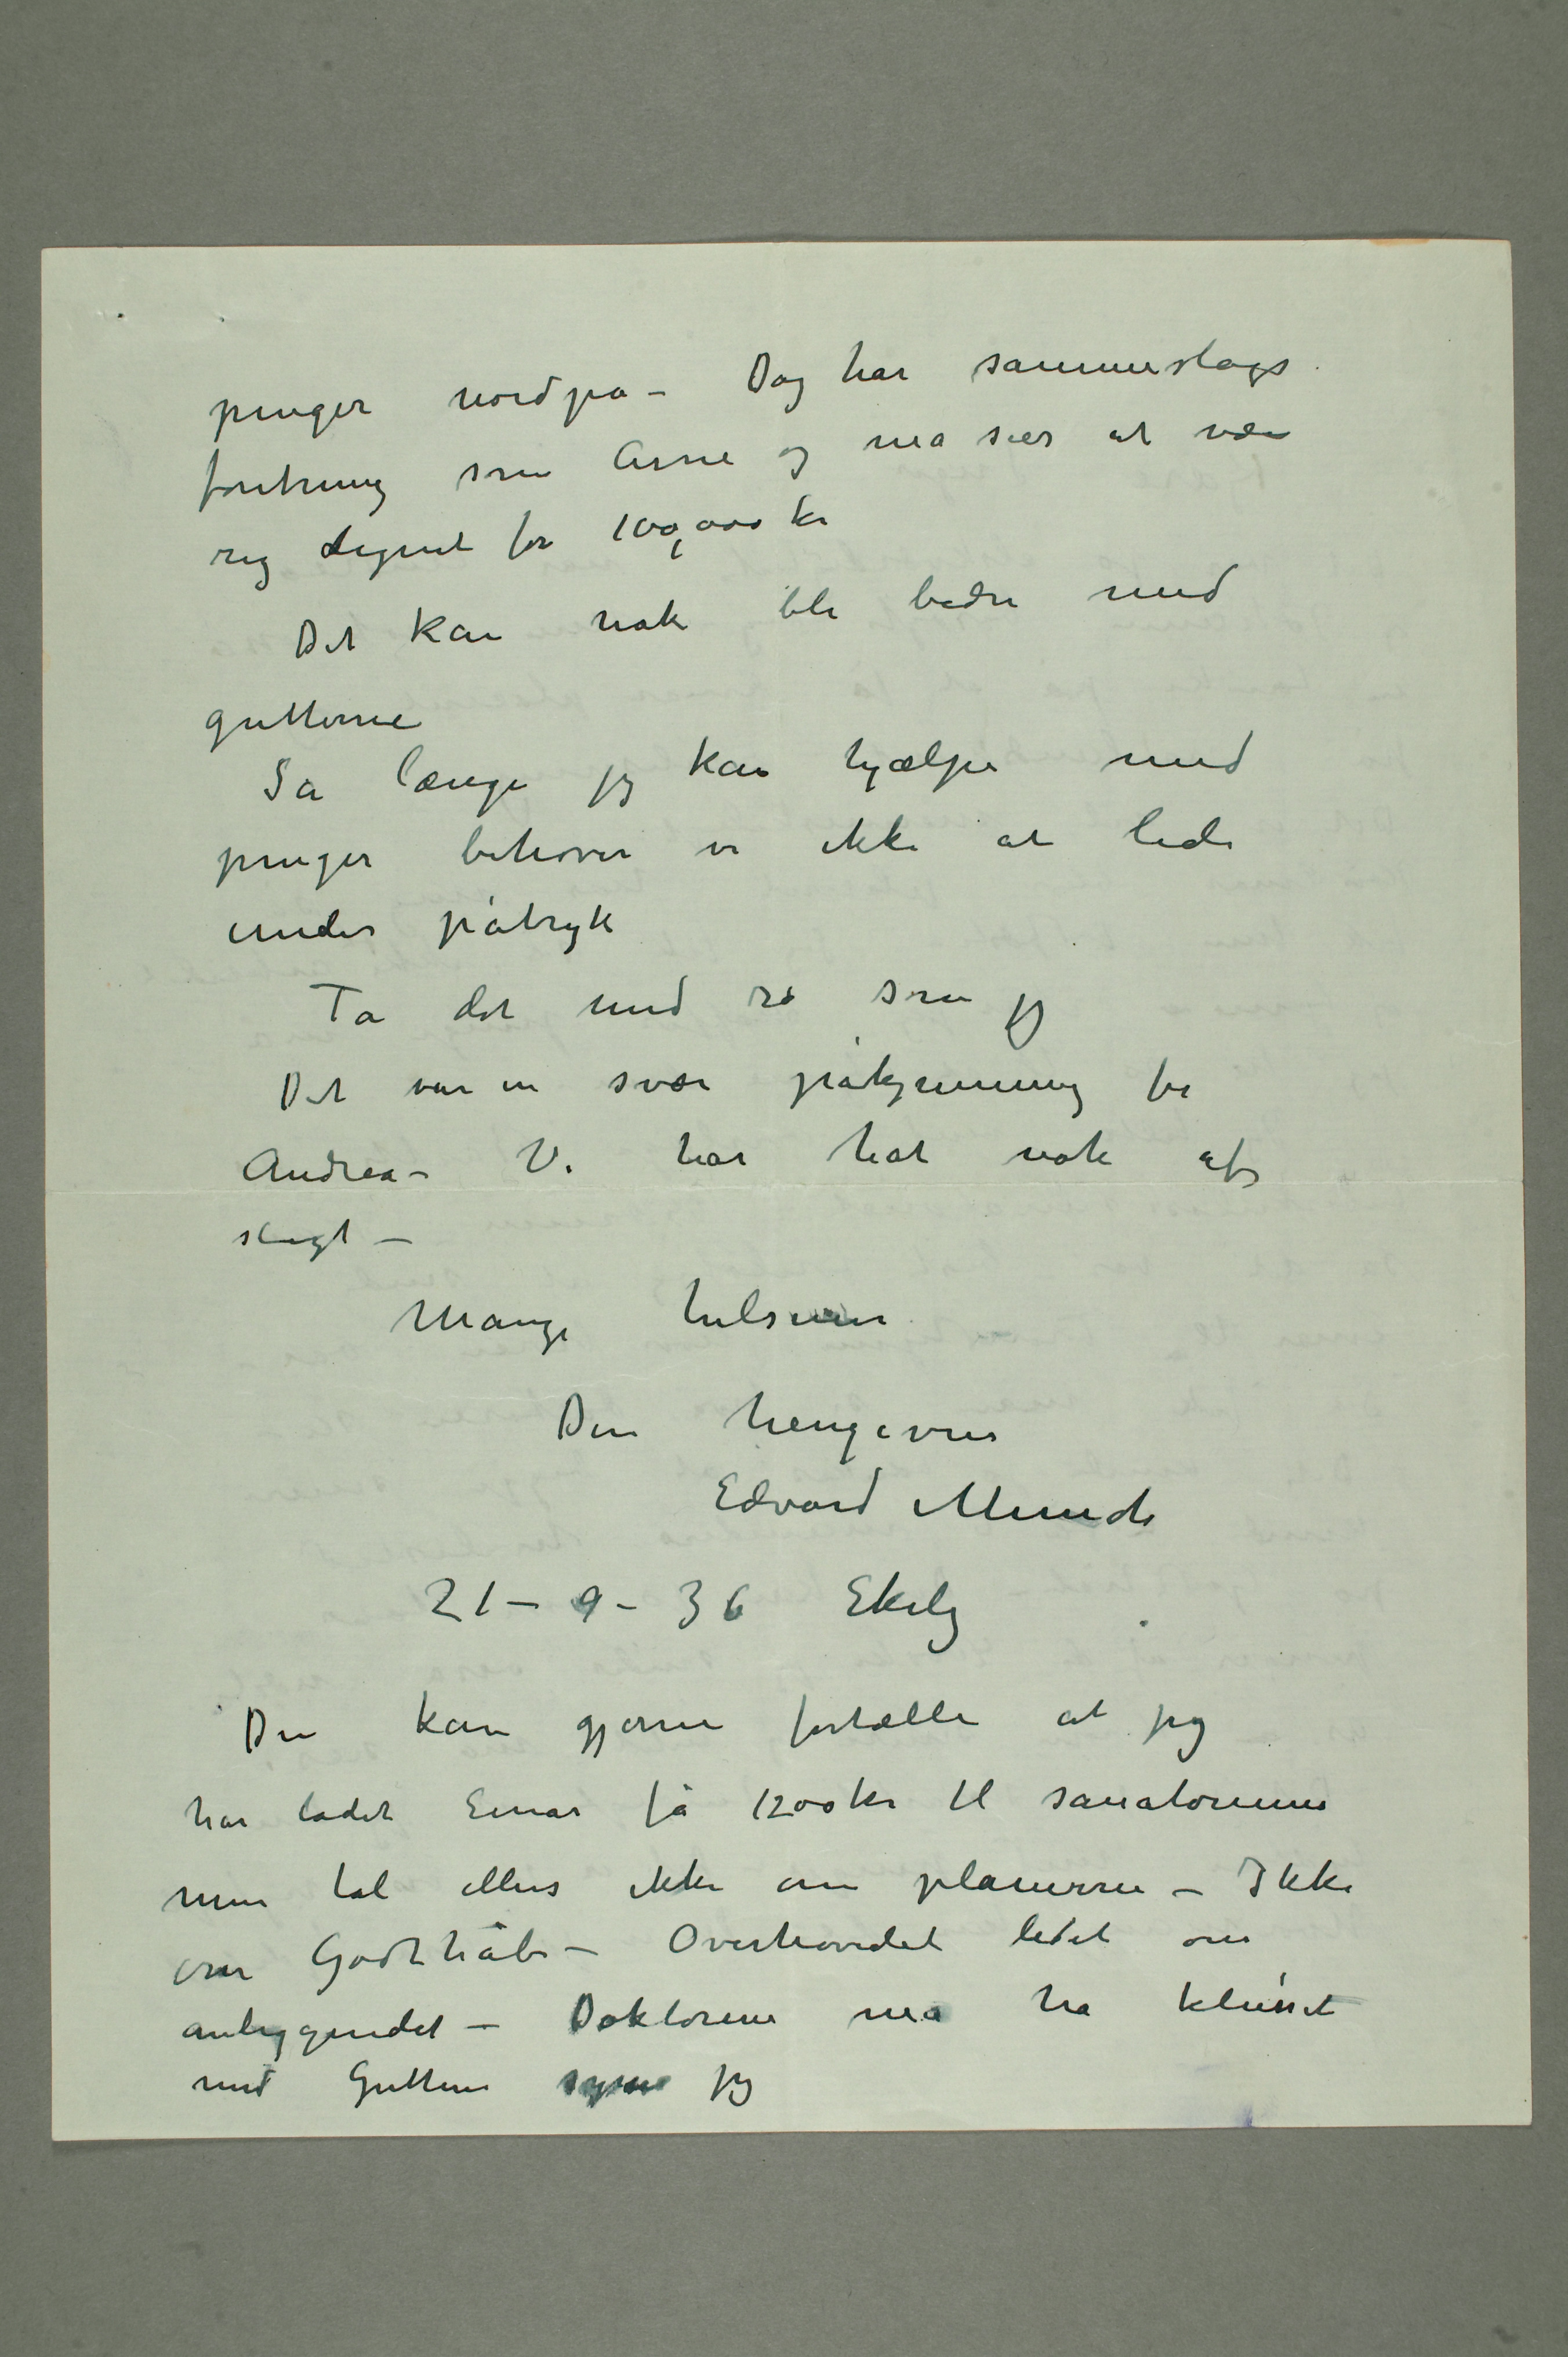 penger nordpå – Dag har sammeslags
foretning som Arne og må sies at være
rig Lignet for 100,000 kr
Det kan nok bli bedre med
gutterne
Så længe jeg kan hjælpe med
penger behøver vi ikke at lide
under påtryk
Ta det med ro som jeg
Det var en svær påkjenning for
Andrea – Vi har hat nok af
sligt –
Mange hilsener
Din hengivne
Edvard Munch
21 – 9 – 36 Ekely
Du kan gjerne fortælle at jeg
har ladet Einar få 1200 kr til sanatorium
men tal ellers ikke om planerne – Ikke
om Godthåb – Overhovedet lidet om
anliggendet – Doktorene må ha klusset
med Gutten synes jeg